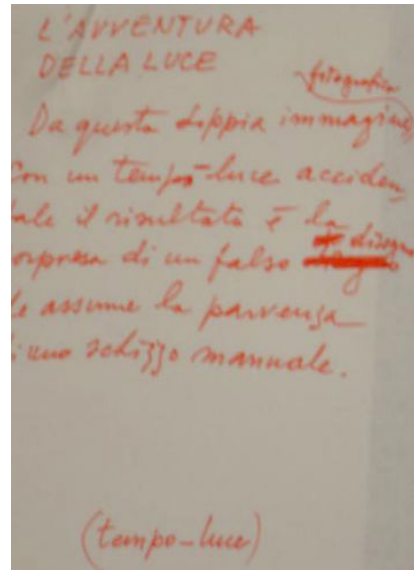 L'AVVENTURA
DELLA LUCE
fotografica
Da questa doppia immagine
Con un tempo-luce acciden
tale il risultato è la
sorpresa di un falso disegno
che assume la parvenza
di uno schizzo manuale.
(tempo-luce)